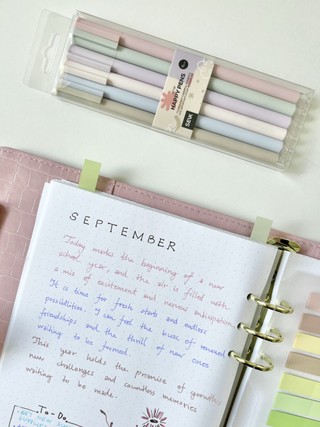 HAPPY PENS
SEPTEMBER
Today marks the beginning of a new
school year, and the air is filled with
a mix of excitement and nervous anticipation.
It is time for fresh starts and endless
possibilities. I can feel the buzz of renewed
friendships and the thrill of new ones
waiting to be formed.
This year holds the promise of growth,
new challenges and countless memories
waiting to be made.
To-Do